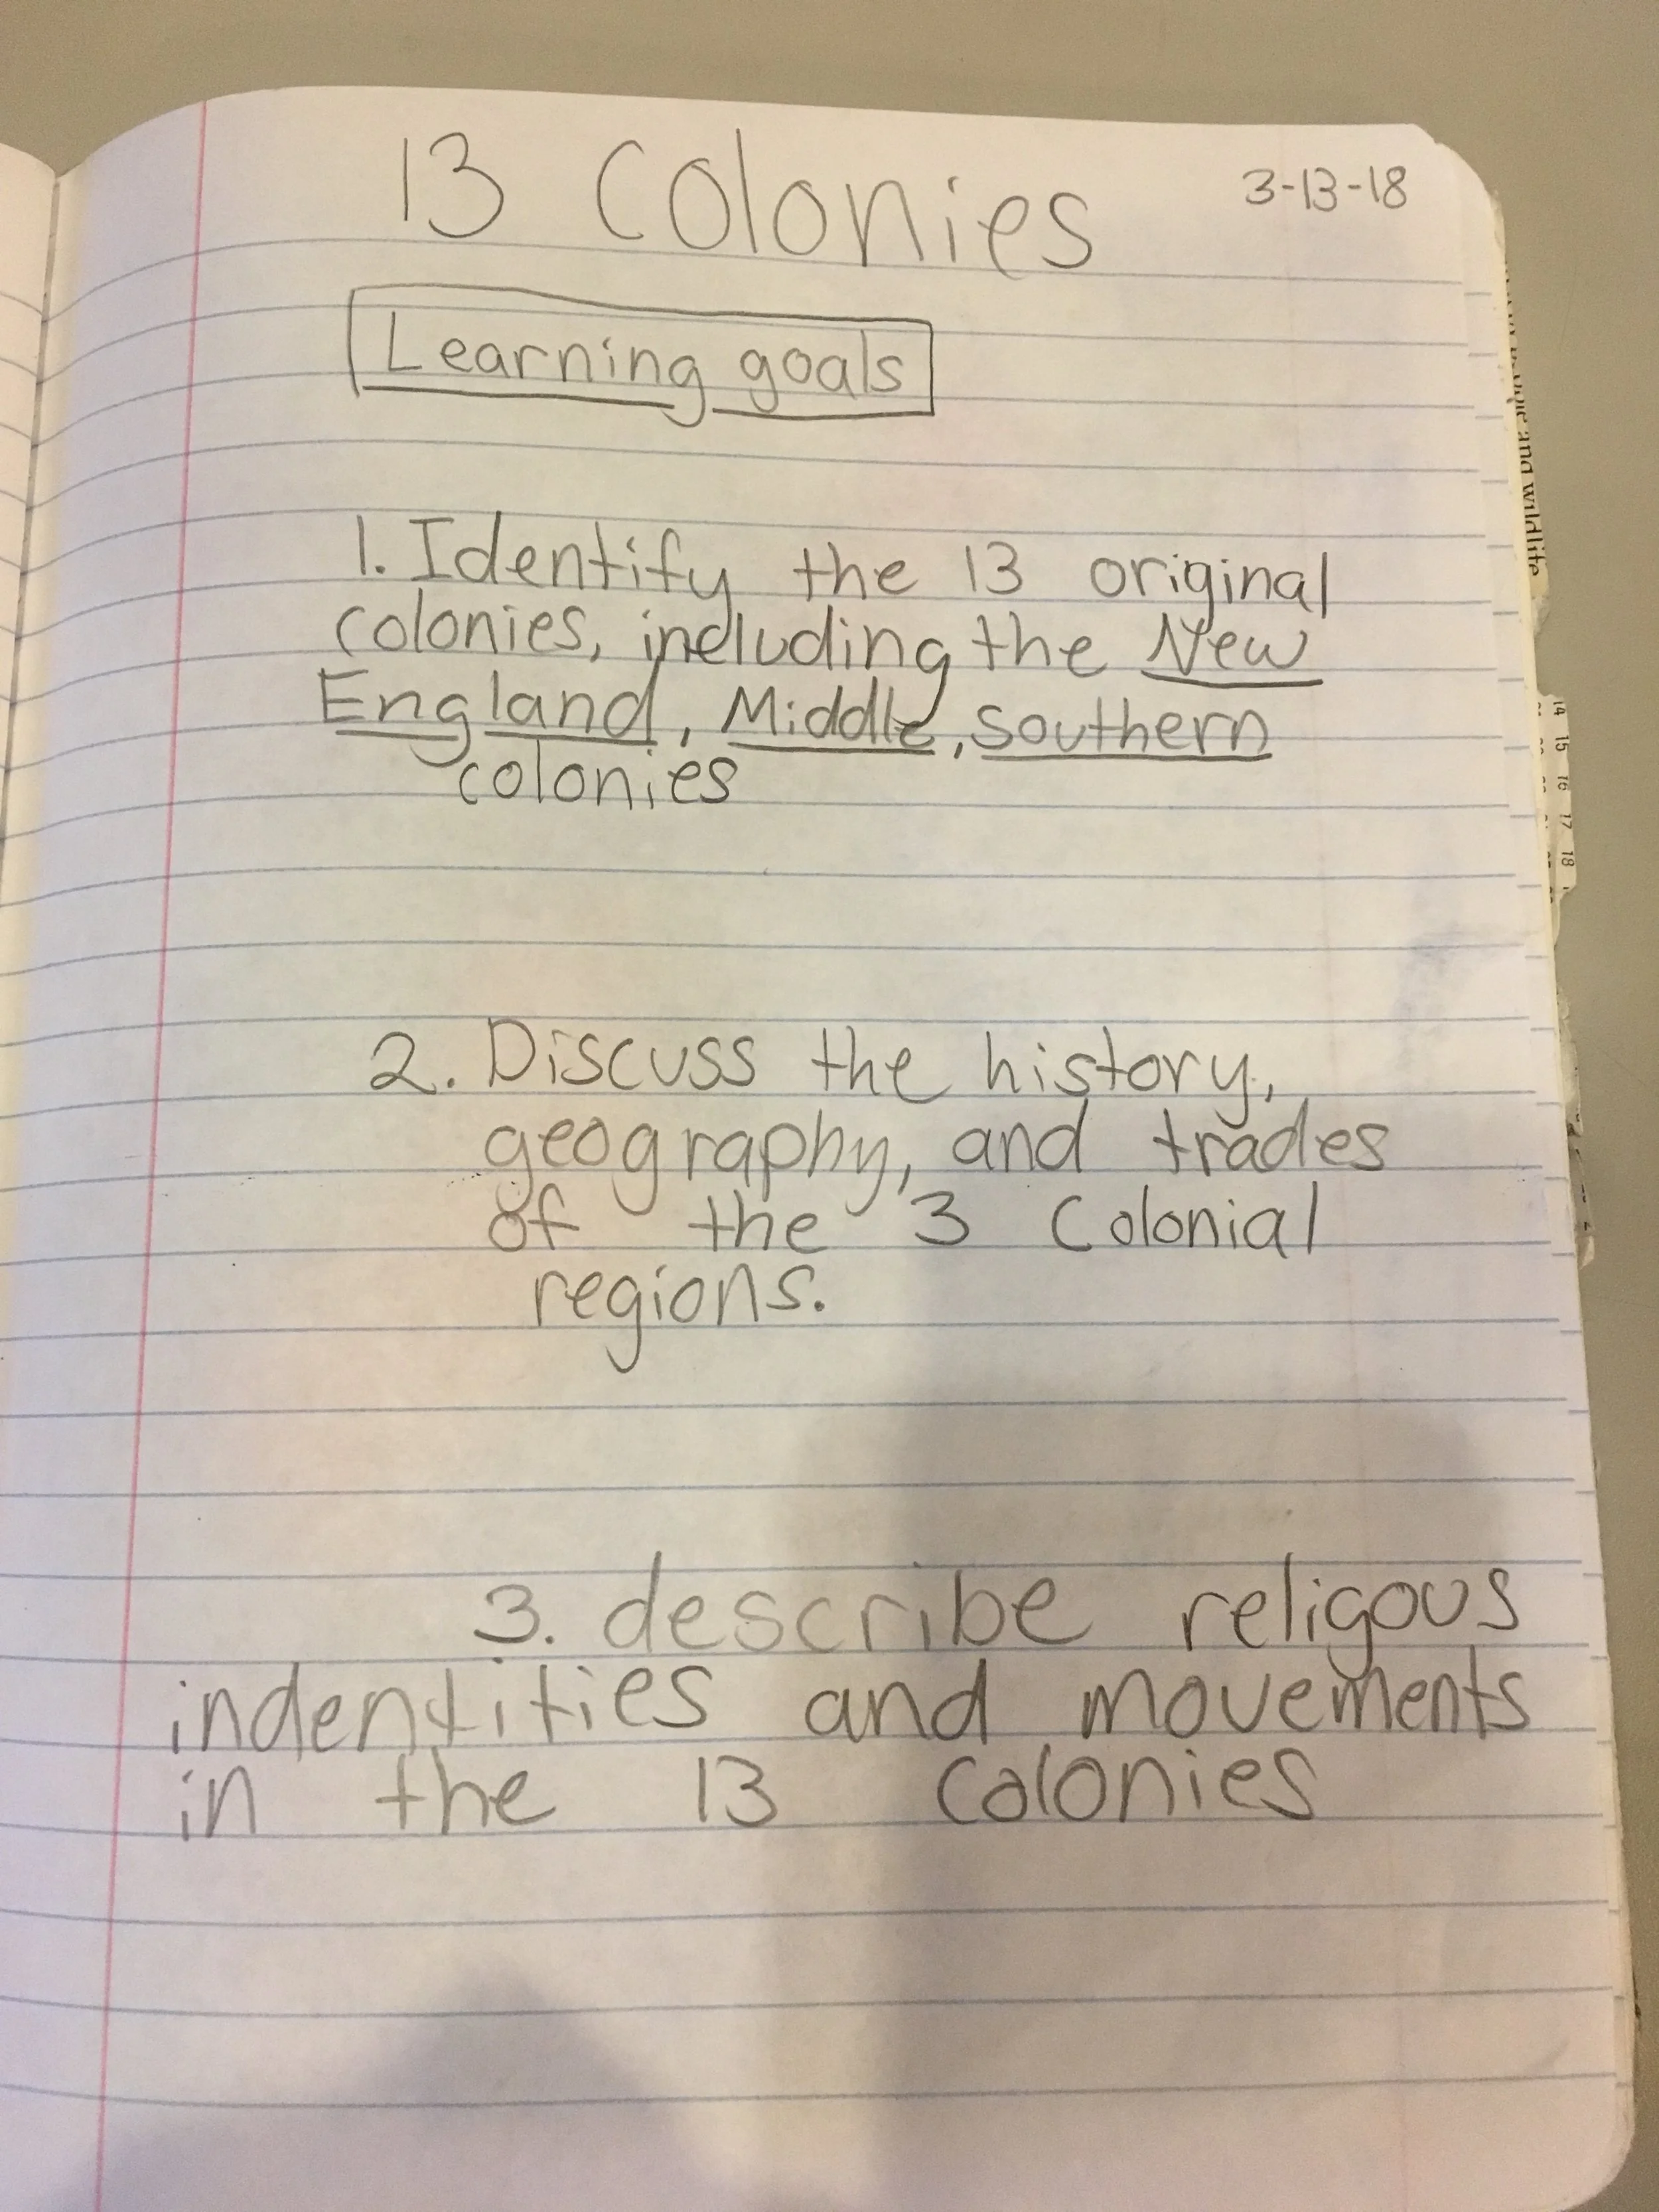 13 Colonies
3-13-18
Learning goals
1. Identify the 13 original
colonies, including the New
England, Middle, southern
colonies
2. Discuss the history,
geography, and trades
of the 3 Colonial
regions.
3. describe religous
indentities and movements
in the 13 colonies
and wildlife
14 15 16 17 18